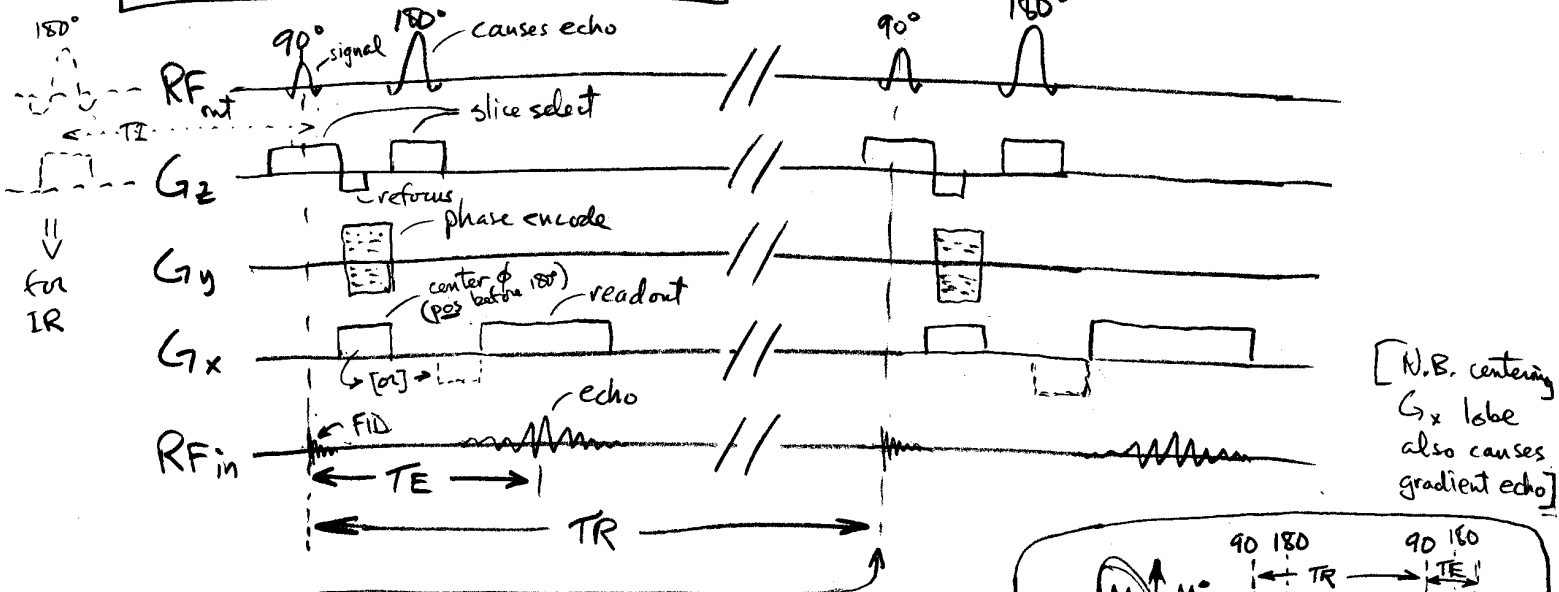 180°
90°
signal
180°
causes echo
90°
180°
RFout
TI
slice select
Gz
refocus
phase encode
⇓
for
IR
Gy
center ϕ
(pos before 180°)
readout
Gx
[or]
[N.B. centering
Gx lobe
also causes
gradient echo]
echo
FID
RFin
TE
TR
90 180
90 180
TR
TE